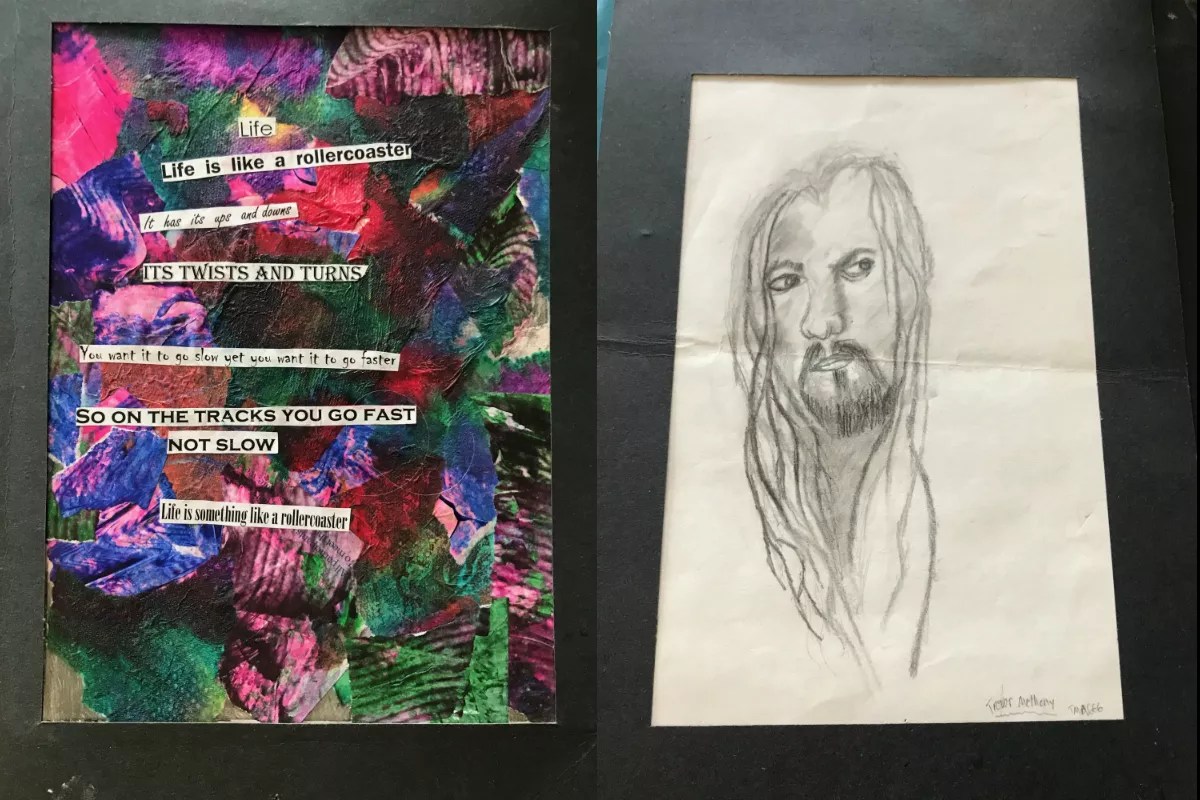 Life
Life is like a rollercoaster
It has its ups and downs
ITS TWISTS AND TURNS
You want it to go slow yet you want it to go faster
SO ON THE TRACKS YOU GO FAST
NOT SLOW
Life is something like a rollercoaster
Trevor Metheny